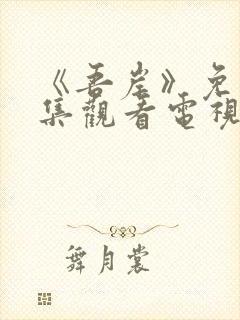 《吾岸》免
集觀看電視
舞月裳